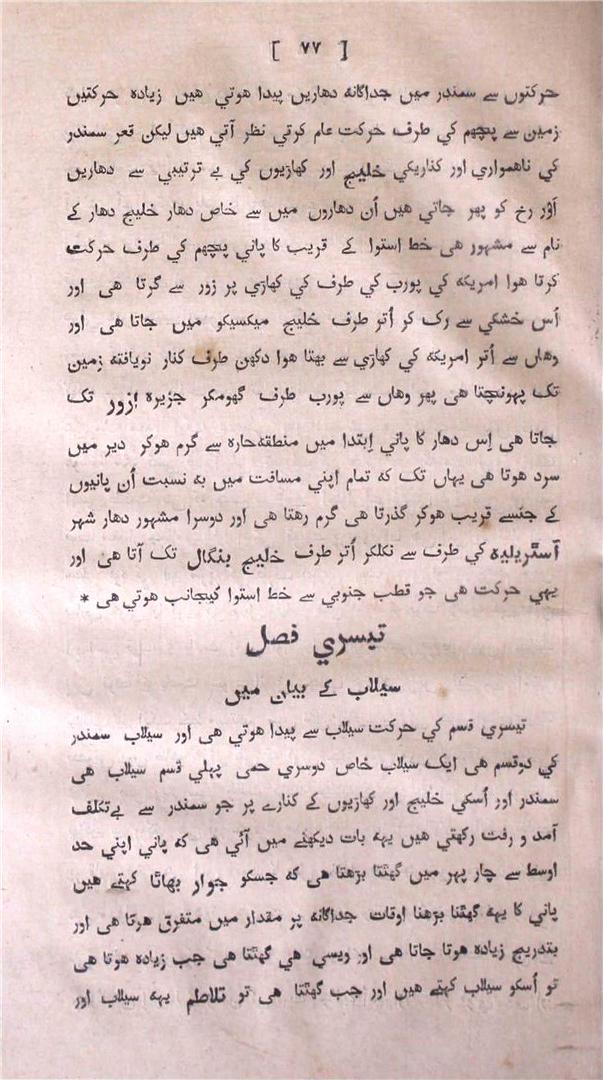 [ ٧٧ ]
حرکتوں سے سمندر میں جداگانہ دھاریں پیدا ھوتي ھیں زیادہ حرکتیں
زمین سے پچھم کي طرف حرکت عام کرتي نظر آتي ھیں لیکن قعر سمندر
کي ناھمواري اور کناریکي خلیج اور کھاڑیوں کي بے ترتیبي سے دھاریں
اَوْر رخ کو پھر جاتي ھیں اُن دھاروں میں سے خاص دھار خلیج دھار کے
نام سے مشہور ھی خط استوا کے قریب کا پاني پچھم کي طرف حرکت
کرتا ھوا امریکہ کي پورب کي طرف کي کھاڑي پر زور سے گرتا ھی اور
اُس خشکي سے رک کر اُتر طرف خلیج میکسیکو میں جاتا ھی اور
وھاں سے اُتر امریکہ کي کھاڑي سے بھتا ھوا دکھن طرف کنار نویافتہ زمین
تک پہونچتا ھی پھر وھاں سے پورب طرف گھومکر جزیرہ ازور تک
جاتا ھی اِس دھار کا پاني اِبتدا میں منطقہ حارہ سے گرم ھوکر دیر میں
سرد ھوتا ھی یہاں تک کہ تمام اپني مسافت میں بہ نسبت اُن پانیوں
کے جنسے قریب ھوکر گذرتا ھی گرم رھتا ھی اور دوسرا مشہور دھار شہر
آسٹریلیہ کي طرف سے نکلکر اُتر طرف خلیج بنگال تک آتا ھی اور
یہي حرکت ھی جو قطب جنوبي سے خط استوا کیجانب ھوتي ھی *
تیسري فصل
سیلاب کے بیان میں
تیسري قسم کي حرکت سیلاب سے پیدا ھوتي ھی اور سیلاب سمندر
کي دوقسم ھی ایک سیلاب خاص دوسري حمی پہلي قسم سیلاب ھی
سمندر اور اُسکي خلیج اور کھاڑیوں کے کنارے پر جو سمندر سے بےتکلف
آمد و رفت رکھتي ھیں یہہ بات دیکھنے میں آئي ھی کہ پاني اپني حد
اوسط سے چار پہر میں گھٹتا بڑھتا ھی کہ جسکو جوار بھاٹا کہتے ھیں
پاني کا یہہ گھٹنا بڑھنا اوقات جداگانہ پر مقدار میں متفرق ھوتا ھی اور
بتدریج زیادہ ھوتا جاتا ھی اور ویسي ھي گھٹتا ھی جب زیادہ ھوتا ھی
تو اُسکو سیلاب کہتے ھیں اور جب گھٹتا ھی تو تلاطم یہہ سیلاب اور